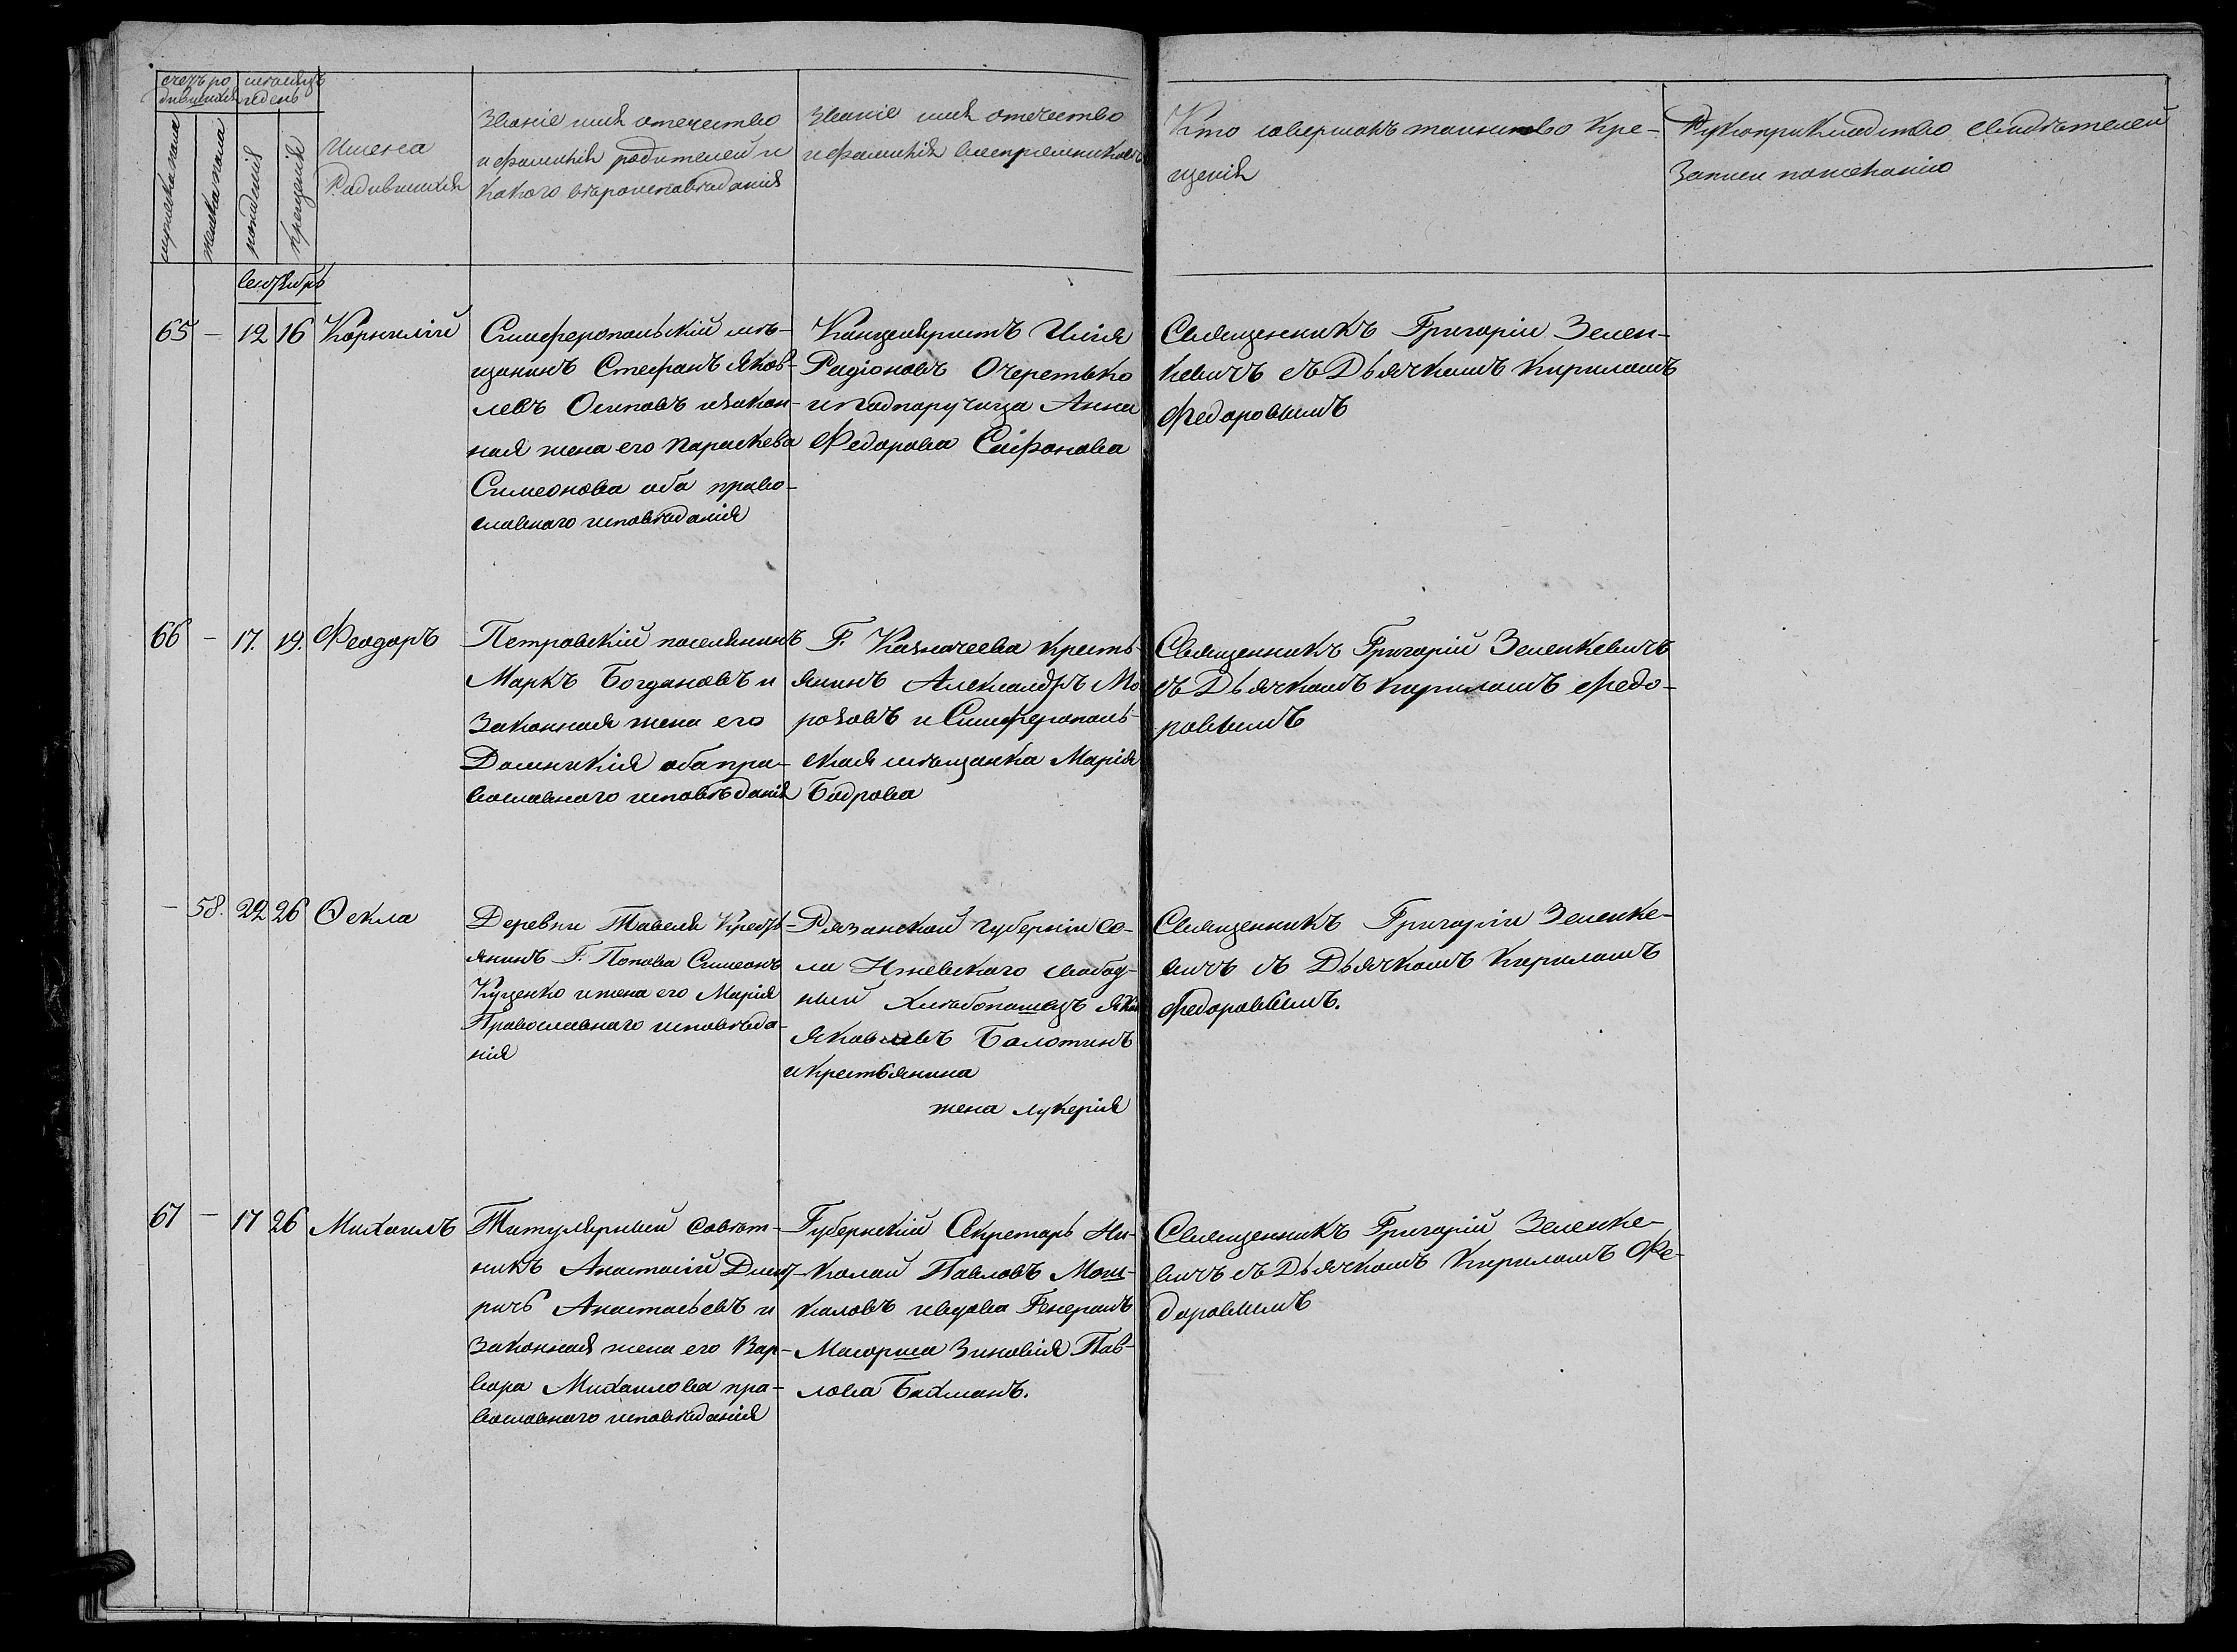 счетъ ро
дившихся
мужеска пола
женска пола
месяцъ
и день
рождения
крещения
Имена
Родившихся
Званіе имя отечество
и фамилія родителей и
какого вероисповеданія
Званіе имя отечество
и фамилія восприемниковъ
Кто совершалъ таинство кре-
щенія
Рукоприкладство свидѣтелей
Записи по желанію
сентябрь
65 - 12 16 Корнилій
Симферопольскій мѣ-
щанинъ Стефанъ Яков-
левъ Осиповъ и закон-
ная жена его Параскева
Симеонова оба право-
славнаго исповѣданія
Канцеляристъ Илія
Радіоновъ Очеретько
и Подпоручица Анна
Федорова Сафонова
Священникъ Григоріи Зелен-
кевичъ съ Дьячкомъ Кириломъ
Федоровымъ
66 - 17. 19. Феодоръ
Петровскій поселянинъ
Маркъ Богдановъ и
Законная жена его
Домникія оба пра-
вославнаго исповѣданія
Г. Казначеева кресть-
янинъ Александръ Мо
розовъ и Симферополь-
ская мѣщанка Марія
Бодрова
Священникъ Григорій Зеленкевичъ
съ Дьячкомъ Кириломъ Федо-
ровымъ
- 58. 22 26 Ѳекла
Деревни Тавеля Кресть-
янинъ Г. Попова Симеонъ
Куценко и жена его Марія
Православнаго исповѣда-
нія
Рязанской губерніи се-
ла Ижевскаго свобод-
ный Хлѣбопашецъ
Яковлевъ Болотинъ
и крестьянина
жена Лукерія
Священникъ Григоріи Зеленке-
вичъ съ Дьячкомъ Кириломъ
Федоровымъ.
67 - 17 26 Михаилъ
Титулярный Совѣт-
никъ Анастасій Дмит-
ричъ Анастасьевъ и
Законная жена его Вар-
вара Михаилова пра-
вославнаго исповѣданія
Губернскій Секретарь Ни-
колай Павловъ Мош-
каловъ и вдова Генералъ
Маіорша Зиновія Пав-
лова Бахманъ.
Священникъ Григорій Зеленке-
вичъ съ Дьячкомъ Кириломъ Фе-
доровымъ